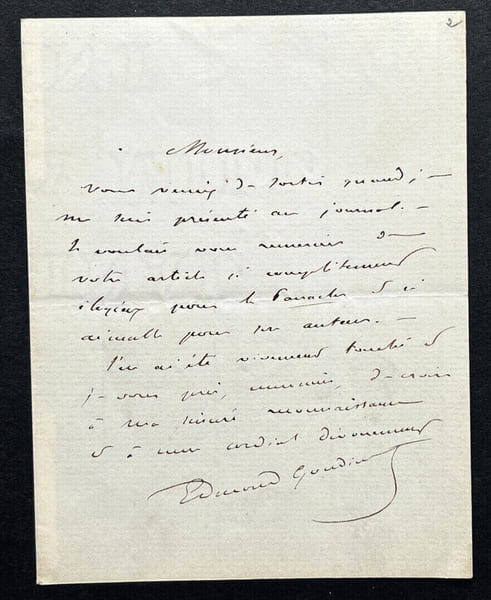 2
Monsieur,
Vous veniez de sortir quand je
me suis présenté au journal. —
Je voulais vous remercier de
votre article si complètement
élogieux pour le Panache & si
aimable pour son auteur. —
J'en ai été vivement touché &
je vous prie, monsieur, de croire
à ma sincère reconnaissance
& à mon cordial dévouement
Edmond Gondinet